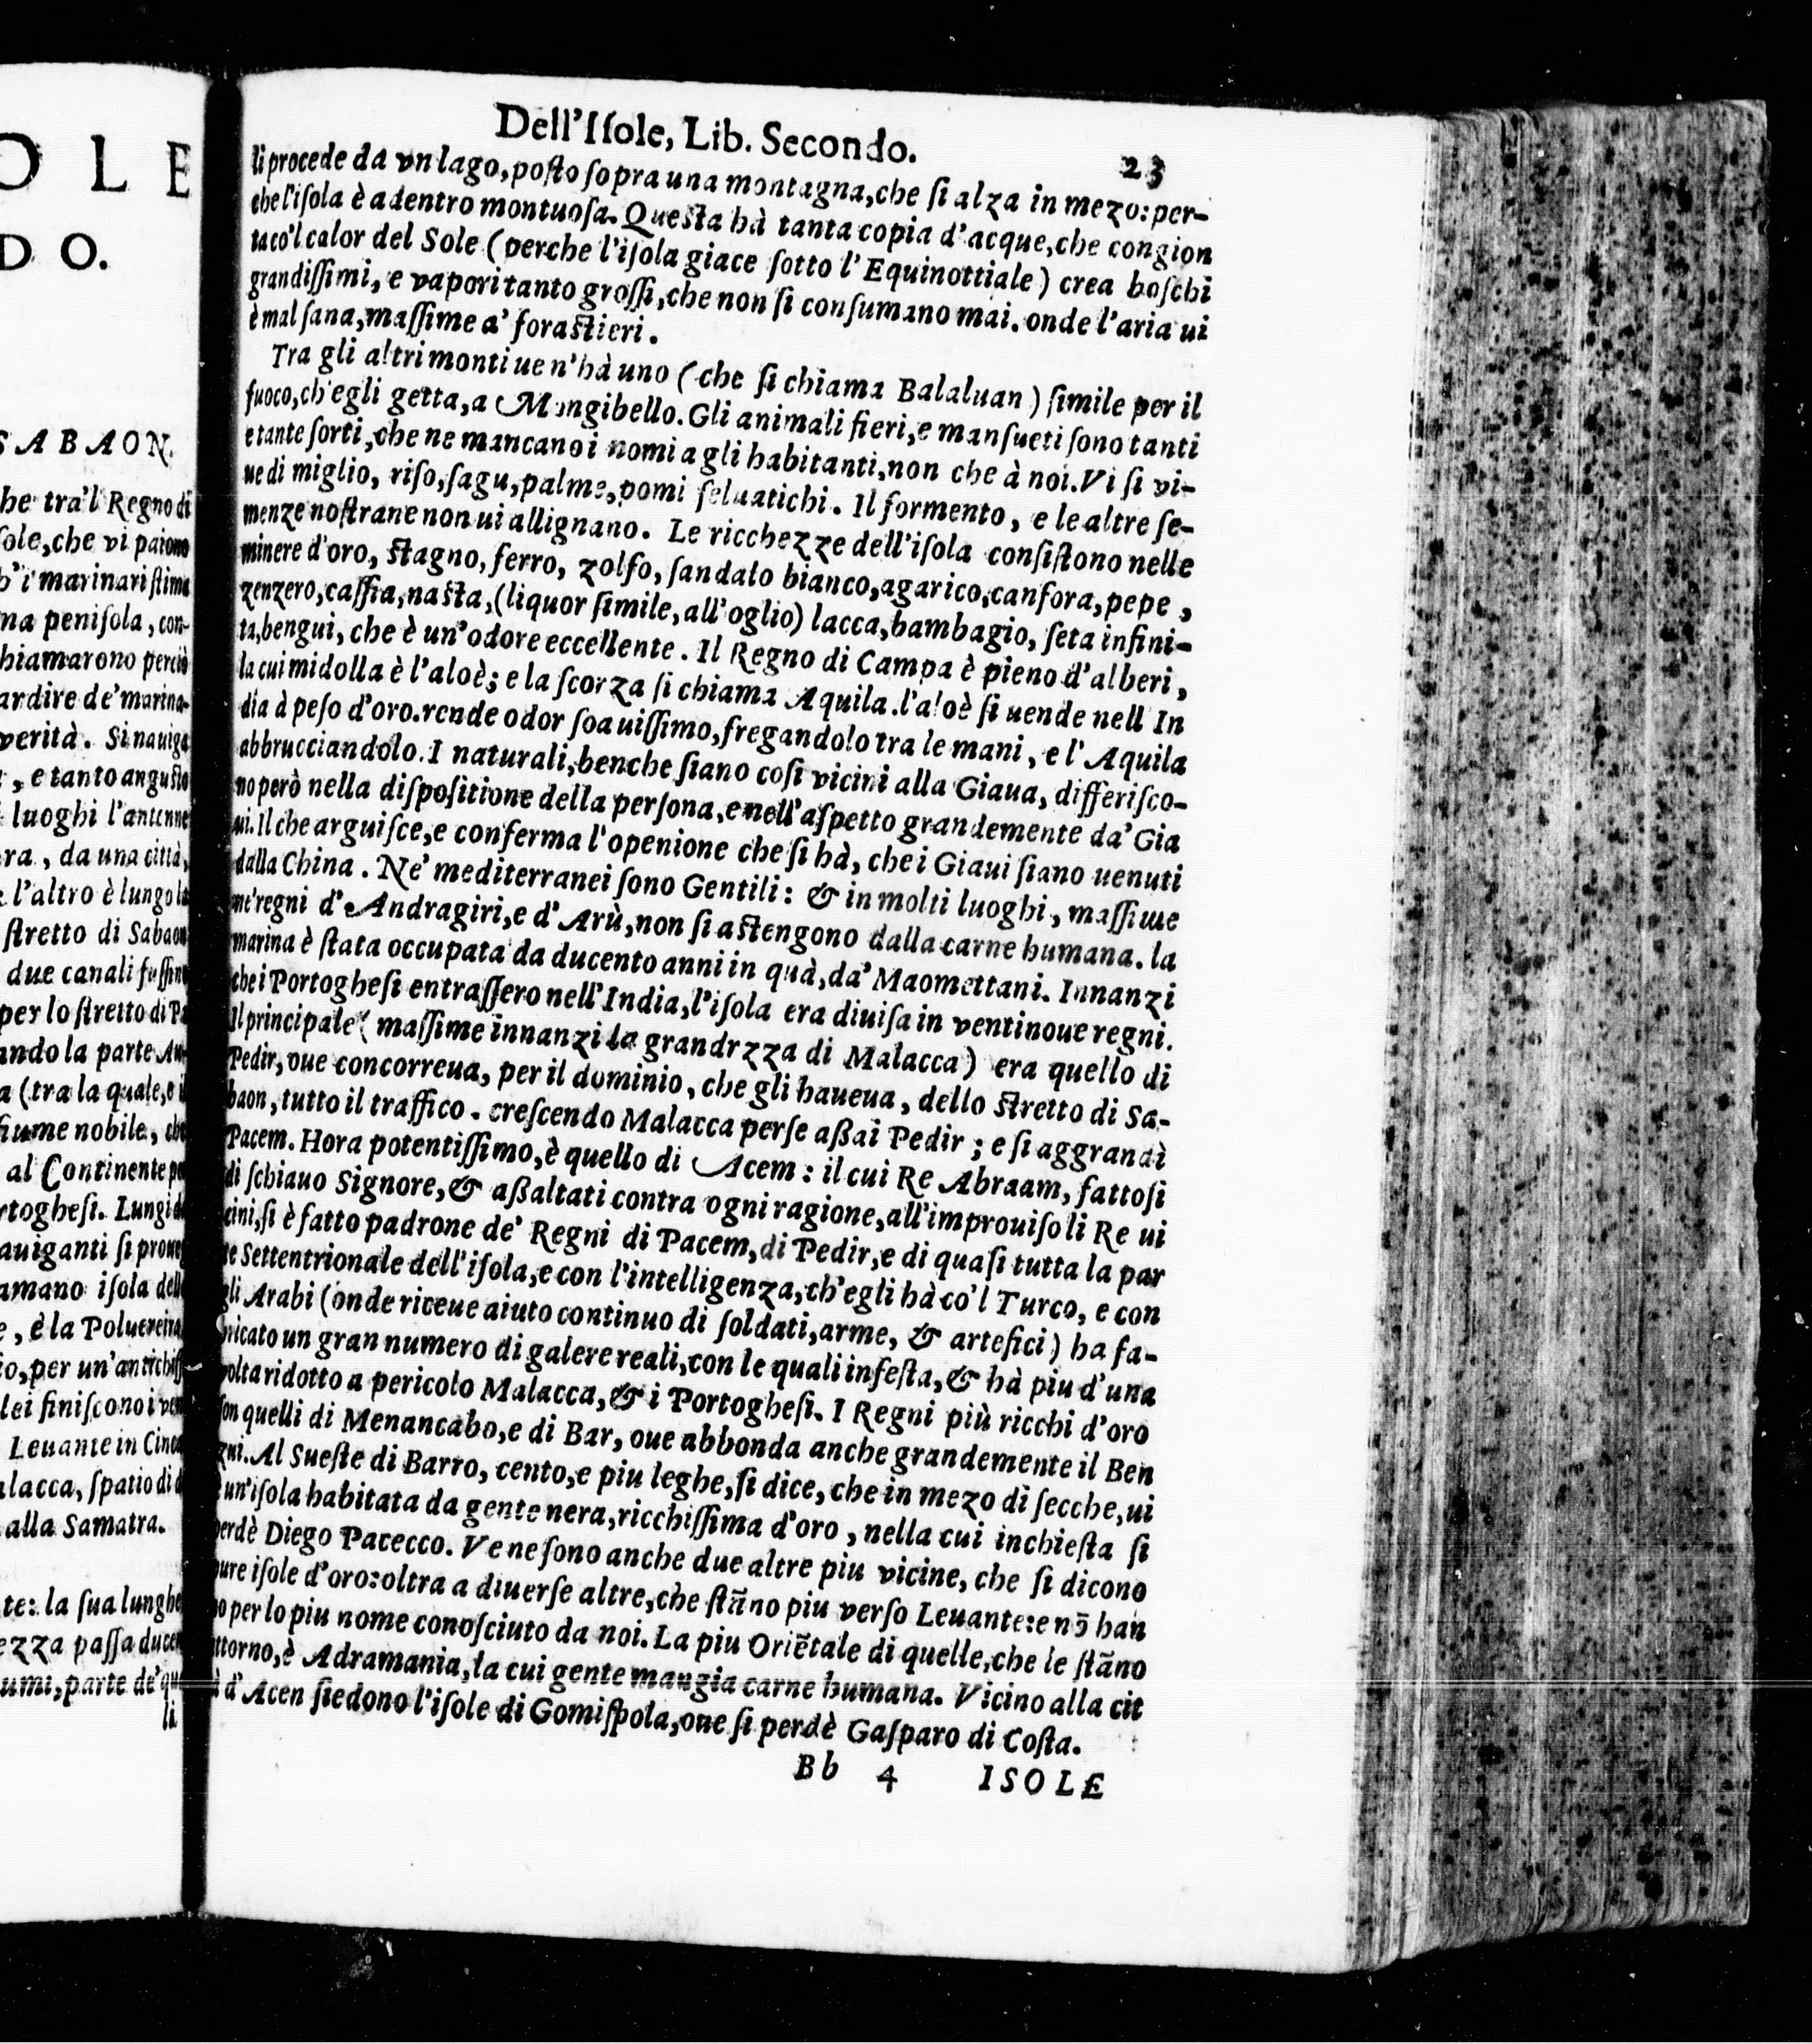 OLE
DO.
SABAON.
he tra'l Regno di
ſole,che vi paiono
h'i marinari ſtima
na peniſola, con-
hiamarono perciò
ardire de' marina-
verità. Si nauiga
, e tanto anguſto
luoghi l'antenne
ra, da una città,
l'altro è lungo la
ſtretto di Sabaon
due canali fuſſino
per lo ſtretto di Pa
ando la parte Au
a (tra la quale,e il
fiume nobile, che
al Continente per
rtogheſi. Lungi da
auiganti ſi proue
amano iſola delle
e, è la Poluereira
io,per un'antichiſſ
lei finiſcono i ven
Leuante in Cinca
alacca, ſpatio di d
alla Samatra.
te: la ſua lunghe
ezza paſſa ducen
umi,parte de' qua
li
Dell'Iſole, Lib. Secondo. 23
li procede da vn lago,poſto ſopra una montagna,che ſi alza in mezo:per-
che l'iſola è adentro montuoſa. Queſta hà tanta copia d'acque,che congion
ta co'l calor del Sole (perche l'iſola giace ſotto l'Equinottiale) crea boſchi
grandiſſimi, e vapori tanto groſſi,che non ſi conſumano mai. onde l'aria ui
è mal ſana,maſſime a' foraſtieri.
Tra gli altri monti ue n'hà uno (che ſi chiama Balaluan) ſimile per il
fuoco,ch'egli getta,a Mongibello. Gli animali fieri,e manſueti ſono tanti
e tante ſorti,che ne mancano i nomi a gli habitanti,non che à noi.Vi ſi vi-
ue di miglio, riſo,ſagu,palme,pomi ſeluatichi. Il formento, e le altre ſe-
menze noſtrane non ui allignano. Le ricchezze dell'iſola conſiſtono nelle
minere d'oro, ſtagno, ferro, zolfo, ſandalo bianco,agarico,canfora,pepe,
zenzero,caſſia,naſta,(liquor ſimile,all'oglio) lacca,bambagio, ſeta infini-
ta,bengui, che è un'odore eccellente. Il Regno di Campa è pieno d'alberi,
la cui midolla è l'aloè; e la ſcorza ſi chiama Aquila.l'aloè ſi uende nell In
dia à peſo d'oro.rende odor ſoauiſſimo,fregandolo tra le mani, e l'Aquila
abbrucciandolo. I naturali,benche ſiano coſi vicini alla Giaua, differiſco-
no però nella diſpoſitione della perſona,e nell'aſpetto grandemente da' Gia
ui. Il che arguiſce,e conferma l'openione che ſi hà, che i Giaui ſiano uenuti
dalla China. Ne' mediterranei ſono Gentili: & in molti luoghi, maſſime
ne' regni d'Andragiri,e d'Arù,non ſi aſtengono dalla carne humana. la
marina è ſtata occupata da ducento anni in quà,da' Maomettani. Innanzi
che i Portogheſi entraſſero nell'India,l'iſola era diuiſa in ventinoue regni.
Il principale (maſſime innanzi la grandrzza di Malacca) era quello di
Pedir,oue concorreua, per il dominio, che gli haueua, dello ſtretto di Sa-
baon, tutto il traffico. creſcendo Malacca perſe aßai Pedir; e ſi aggrandì
Pacem. Hora potentiſſimo,è quello di Acem: il cui Re Abraam, fattoſi
di ſchiauo Signore,& aßaltati contra ogni ragione,all'improuiſo li Re ui
cini,ſi è fatto padrone de' Regni di Pacem,di Pedir,e di quaſi tutta la par
te Settentrionale dell'iſola,e con l'intelligenza,ch'egli hà co'l Turco, e con
gli Arabi (onde riceue aiuto continuo di ſoldati,arme, & artefici) ha fa-
bricato un gran numero di galere reali,con le quali infeſta,& hà piu d'una
volta ridotto a pericolo Malacca,& i Portogheſi. I Regni più ricchi d'oro
ſon quelli di Menancabo,e di Bar, oue abbonda anche grandemente il Ben
gui. Al Sueſte di Barro, cento,e piu leghe,ſi dice, che in mezo di ſecche,ui
è un'iſola habitata da gente nera,ricchiſſima d'oro, nella cui inchieſta ſi
perdè Diego Pacecco. Ve ne ſono anche due altre piu vicine, che ſi dicono
pure iſole d'oro:oltra a diuerſe altre,che ſtāno piu verſo Leuante:e nō han
no per lo piu nome conoſciuto da noi. La piu Oriētale di quelle,che le ſtāno
attorno,è Adramania,la cui gente mangia carne humana. Vicino alla cit
tà d'Acen ſiedono l'iſole di Gomiſpola,oue ſi perdè Gaſparo di Coſta.
Bb 4 ISOLE